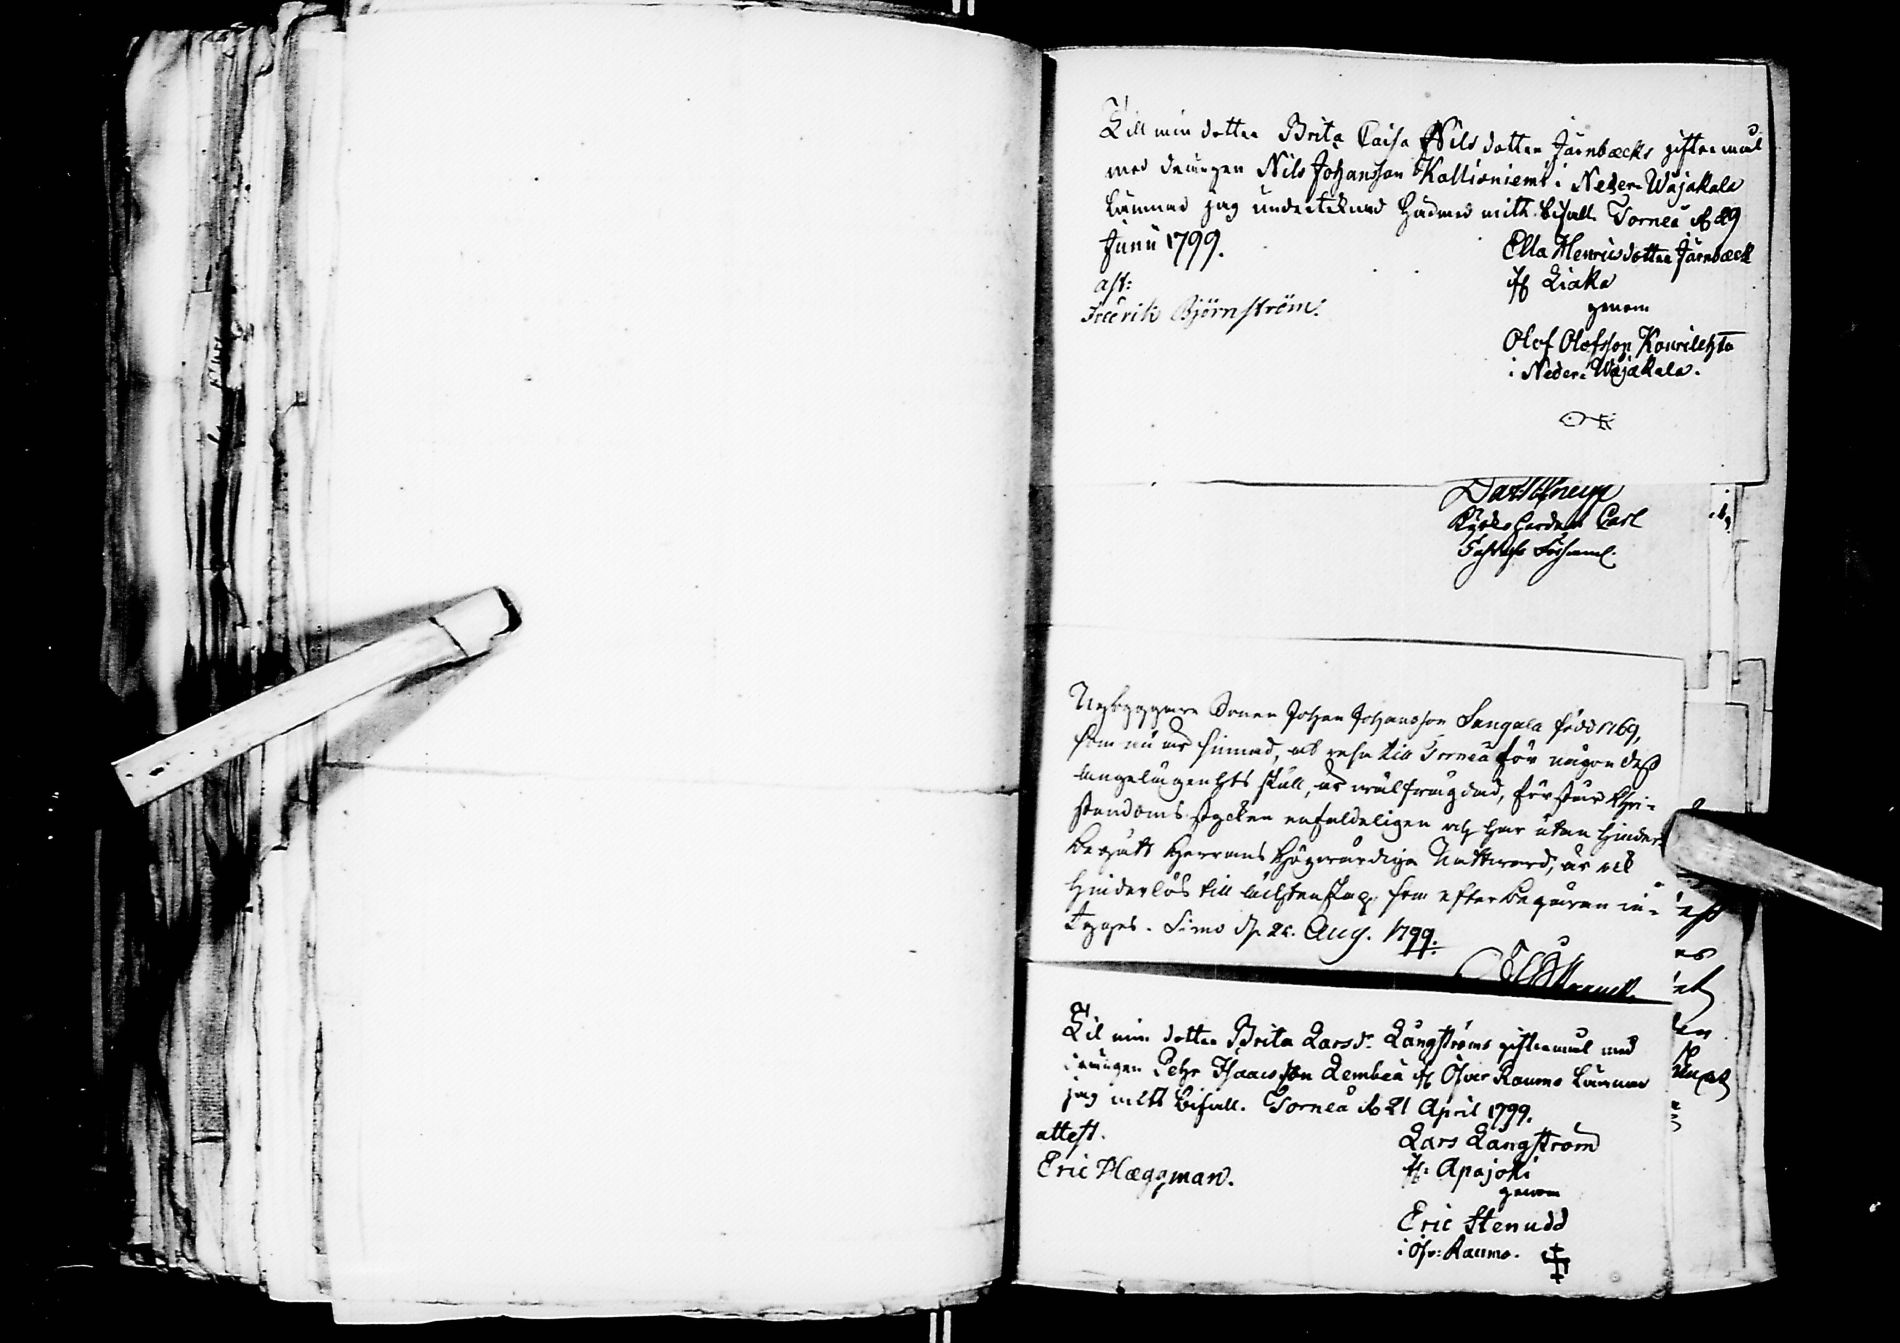 Till min dotter Brita Caisa Nilsdotter Järnbæcks giftermål
med drängen Nils Johansson Kallioniemi i Neder Wojakala
lämnar jag undertecknad härmed mitt bifall. Torneå d 29
Junii 1799.
Ella Henricsdotter Järnbæck
fr Liaka
genom
Olof Olofsson
i Neder Wojakala.
ast:
Fredrik Björnström.
Carl
Nybyggare Sonen Johan Johansson Sangala född 1769,
som nu är sinnad, at resa till Torneå för någon dess
angelägenhets skull, är wälfrägdad, förstår Chri-
stendoms stycken enfaldeligen och har utan hinder
begått Herrans Högwärdiga Nattward, är ock
hinderlös till äcktenskap, som efter begäran in-
tygas. Simo d. Aug. 1799.
Til min dotter Brita Larsdr Långströms giftermål med
drängen Pehr Isaacsson Kembea fr Öfver Raumo lämnar
jag mitt bifall. Torneå d 21 April 1799.
Lars Långström
fr: Apajoki
genom
Eric Stenudd
i Öfv: Raumo.
attest.
Eric Hæggman.